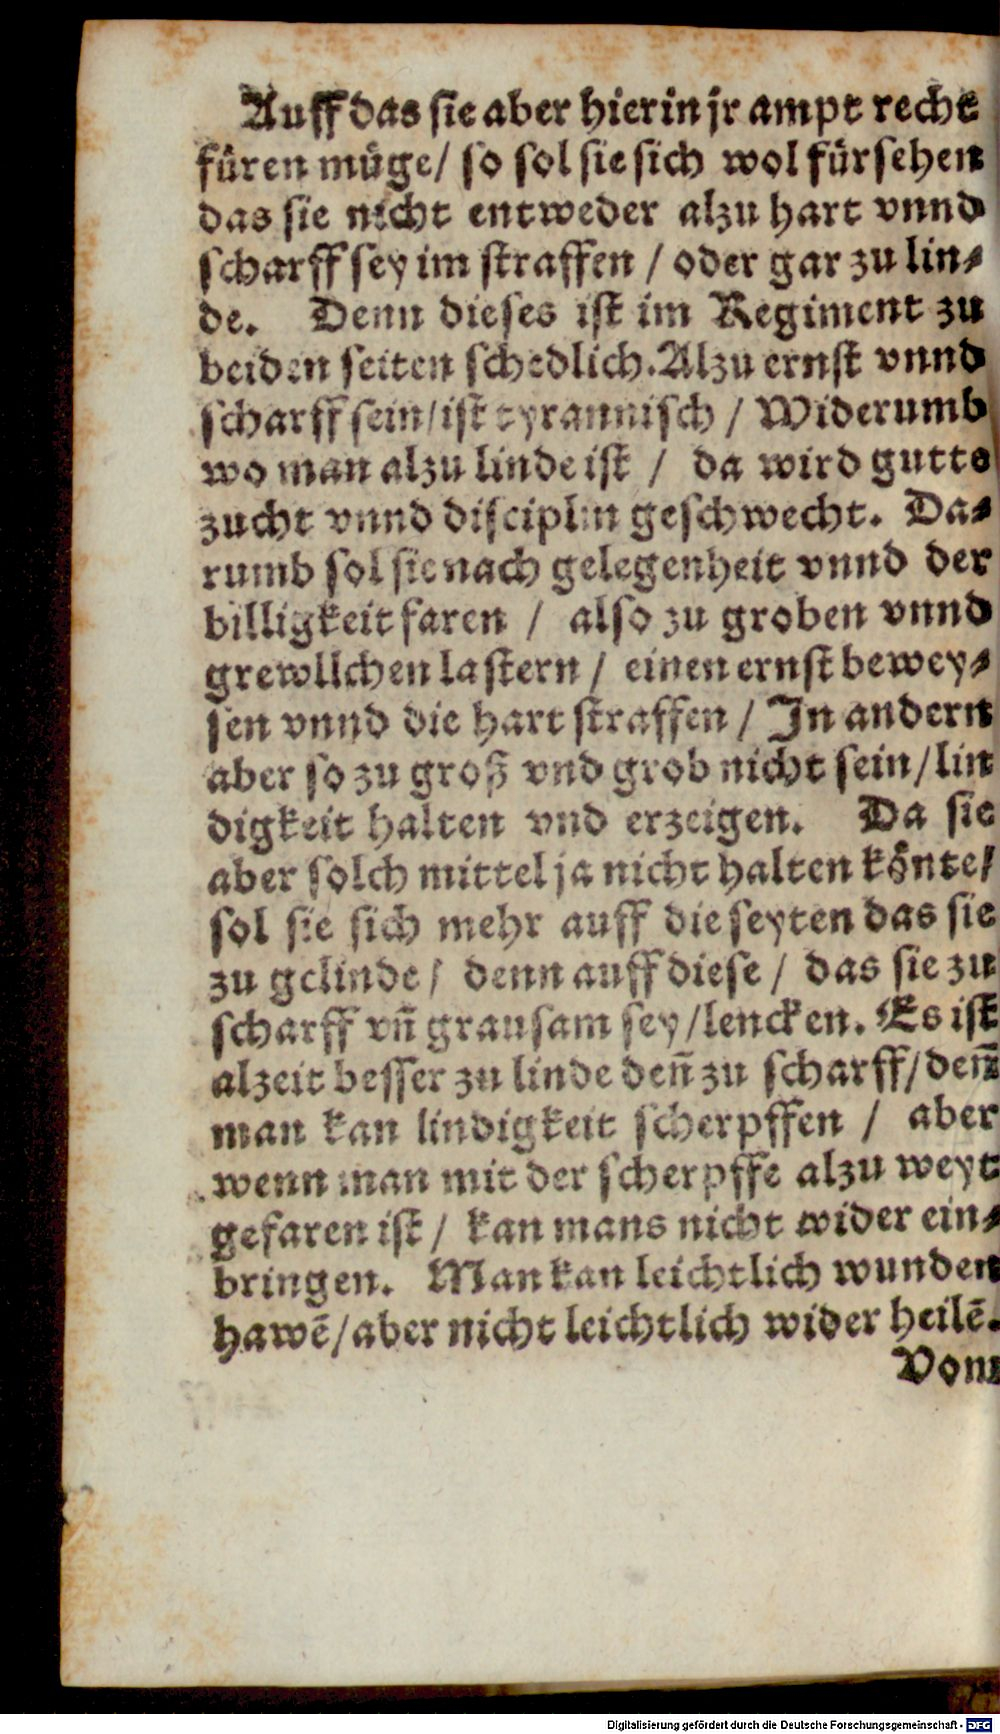 Auff das sie aber hierin jr ampt recht
füren müge/ so sol sie sich wol fürsehen
das sie nicht entweder alzu hart vnnd
scharff sey im straffen / oder gar zu lin⸗
de. Denn dieses ist im Regiment zu
beiden seiten schedlich. Alzu ernst vnnd
scharff sein/ist tyrannisch / Widerumb
wo man alzu linde ist / da wird gutte
zucht vnnd disciplin geschwecht. Da⸗
rumb sol sie nach gelegenheit vnnd der
billigkeit faren / also zu groben vnnd
grewllchen lastern / einen ernst bewey⸗
sen vnnd die hart straffen / In andern
aber so zu groß vnd grob nicht sein/lin
digkeit halten vnd erzeigen. Da sie
aber solch mittel ja nicht halten könte/
sol sie sich mehr auff die seyten das sie
zu gelinde / denn auff diese / das sie zu
scharff vn̄ grausam sey/lencken. Es ist
alzeit besser zu linde den̄ zu scharff/den̄
man kan lindigkeit scherpffen / aber
wenn man mit der scherpffe alzu weyt
gefaren ist / kan mans nicht wider ein⸗
bringen. Man kan leichtlich wunden
hawē/aber nicht leichtlich wider heilē.
Vom
Digitalisierung gefördert durch die Deutsche Forschungsgemeinschaft - DFG